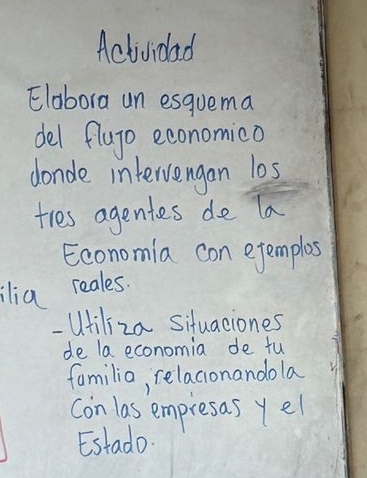 Actividad
Elabora un esquema
del flujo economico
donde intervengan los
tres agentes de la
Economía con ejemplos
reales.
ilia
- Utiliza situaciones
de la economía de tu
familia, relacionandola
con las empresas y el
Estado.